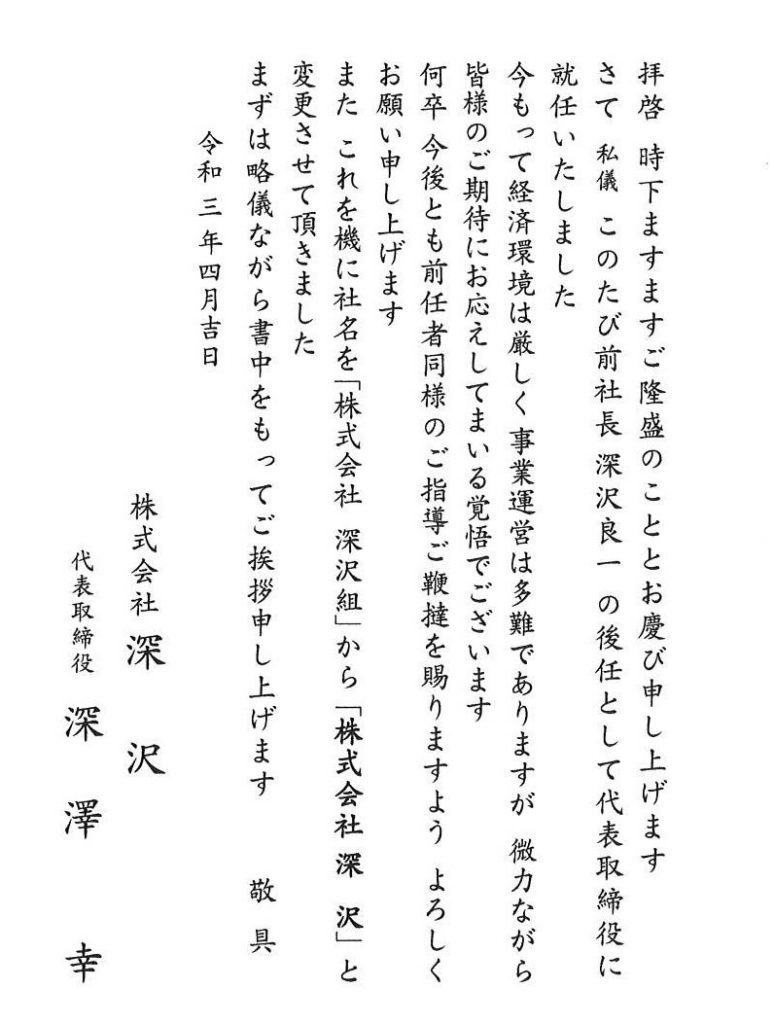 拝啓 時下ますますご隆盛のこととお慶び申し上げます
さて 私儀 このたび前社長 深沢良一 の後任として代表取締役に
就任いたしました
今もって経済環境は厳しく 事業運営は多難でありますが 微力ながら
皆様のご期待にお応えしてまいる覚悟でございます
何卒 今後とも前任者同様のご指導ご鞭撻を賜りますよう よろしく
お願い申し上げます
また これを機に社名を「株式会社 深沢組」から「株式会社 深 沢」と
変更させて頂きました
まずは略儀ながら書中をもってご挨拶申し上げます 敬 具
令和三年四月吉日
株式会社 深 沢
代表取締役 深 澤 幸